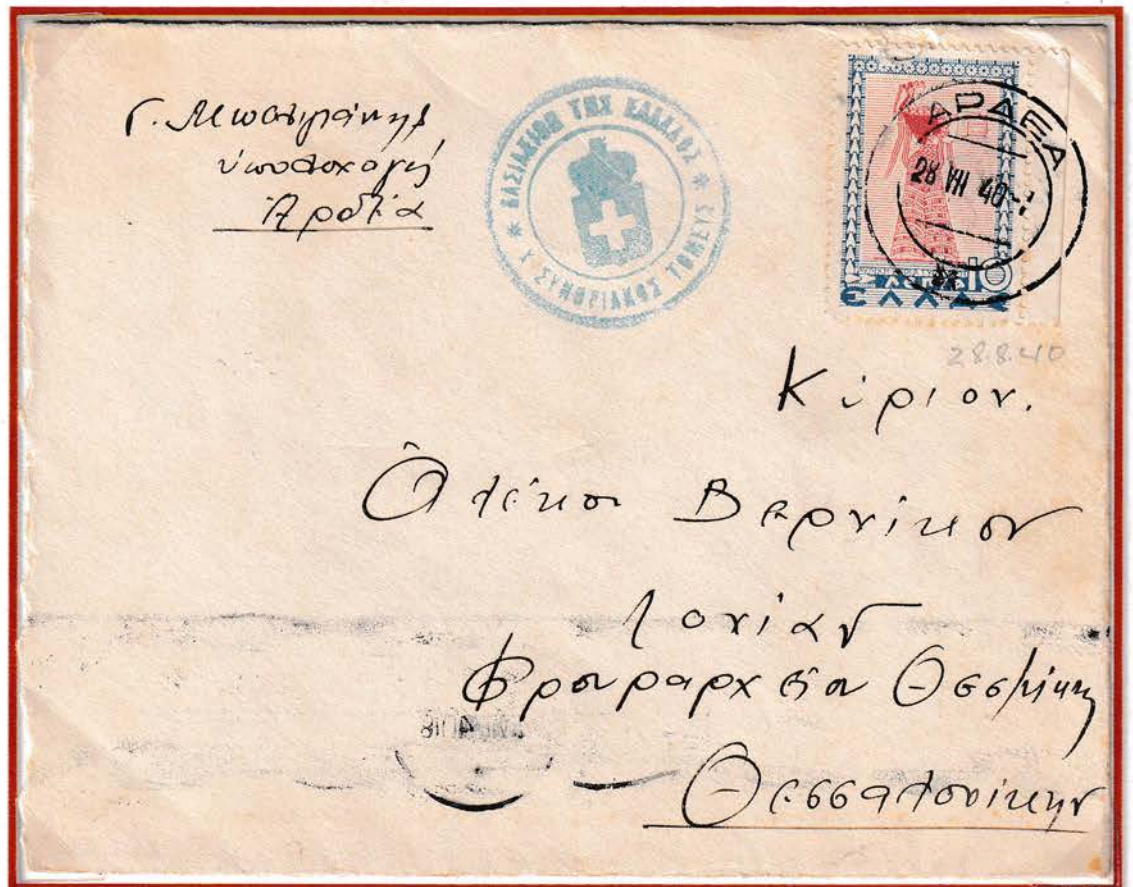 υπολοχαγός
Αρδέα
* ΒΑΣΙΛΕΙΟΝ ΤΗΣ ΕΛΛΑΔΟΣ *
Χ ΣΥΝΟΡΙΑΚΟΣ ΤΟΜΕΥΣ
ΑΡΔΕΑ
28 VIII 40
10
ΕΛΛΑΣ
28.8.40
Κύριον.
Αλέκον Βερνίκον
Λοχίαν
Φρουραρχείον Θεσ/νίκης
Θεσσαλονίκην